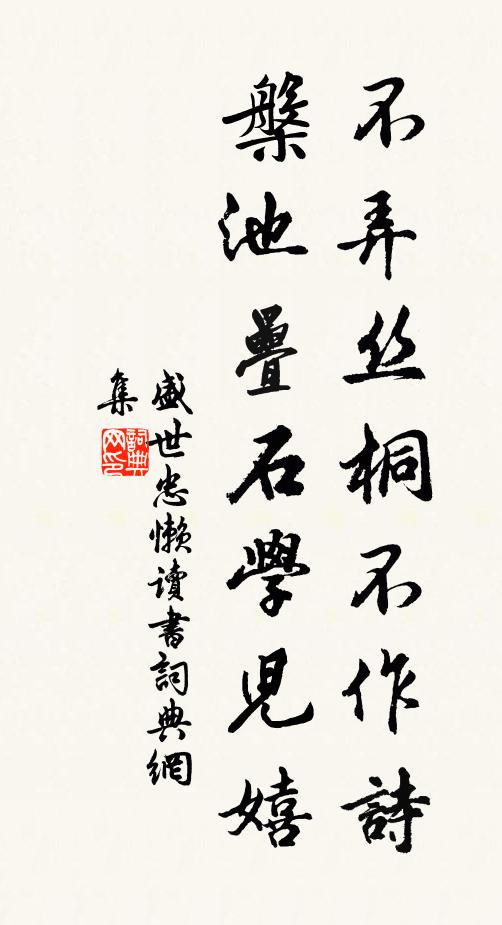 不弄丝桐不作詩
槃池疊石學兒嬉
盛世忠懶讀書詞典網
集
詞典
网印